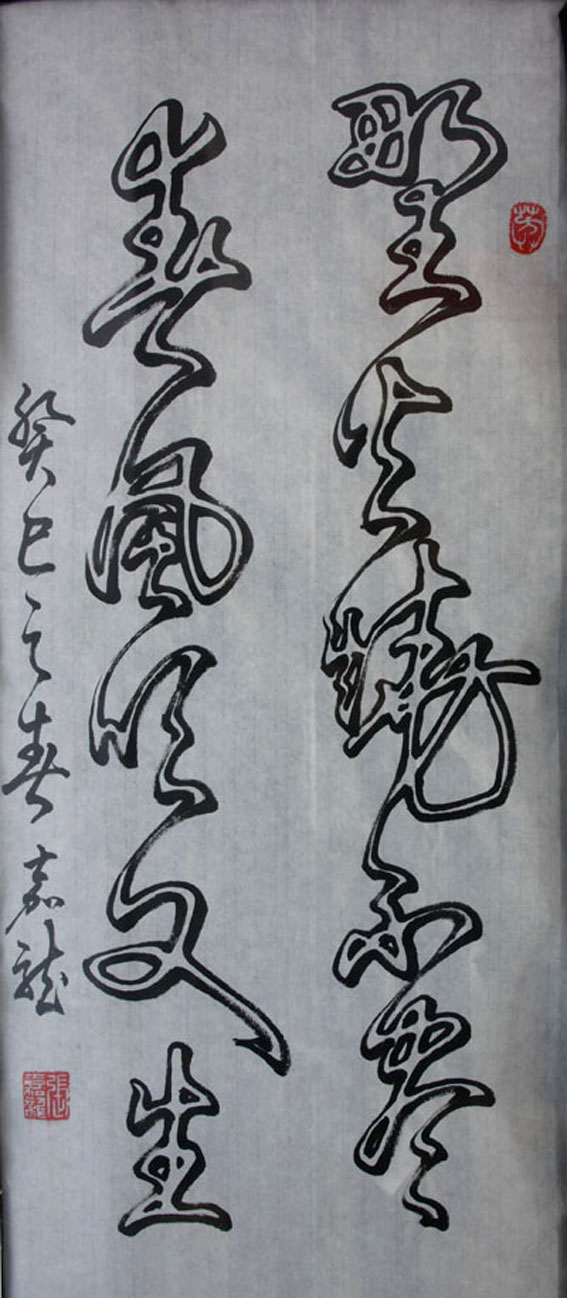 野火烧不尽
春风吹又生
癸巳之春嘉龙